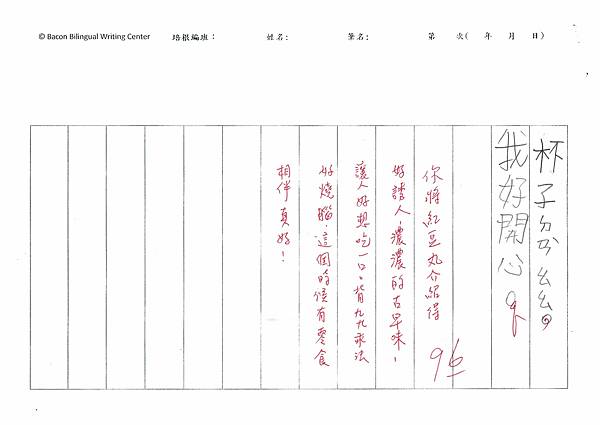 © Bacon Bilingual Writing Center 培根編班： 姓名： 筆名： 第 次( 年 月 日)
杯子ㄉㄞ ㄠㄠ。
我好開心。
你將紅豆丸介紹得
好誘人，濃濃的古早味，
讓人好想吃一口。背九九乘法
好燒腦，這個時候有零食
相伴真好！
96